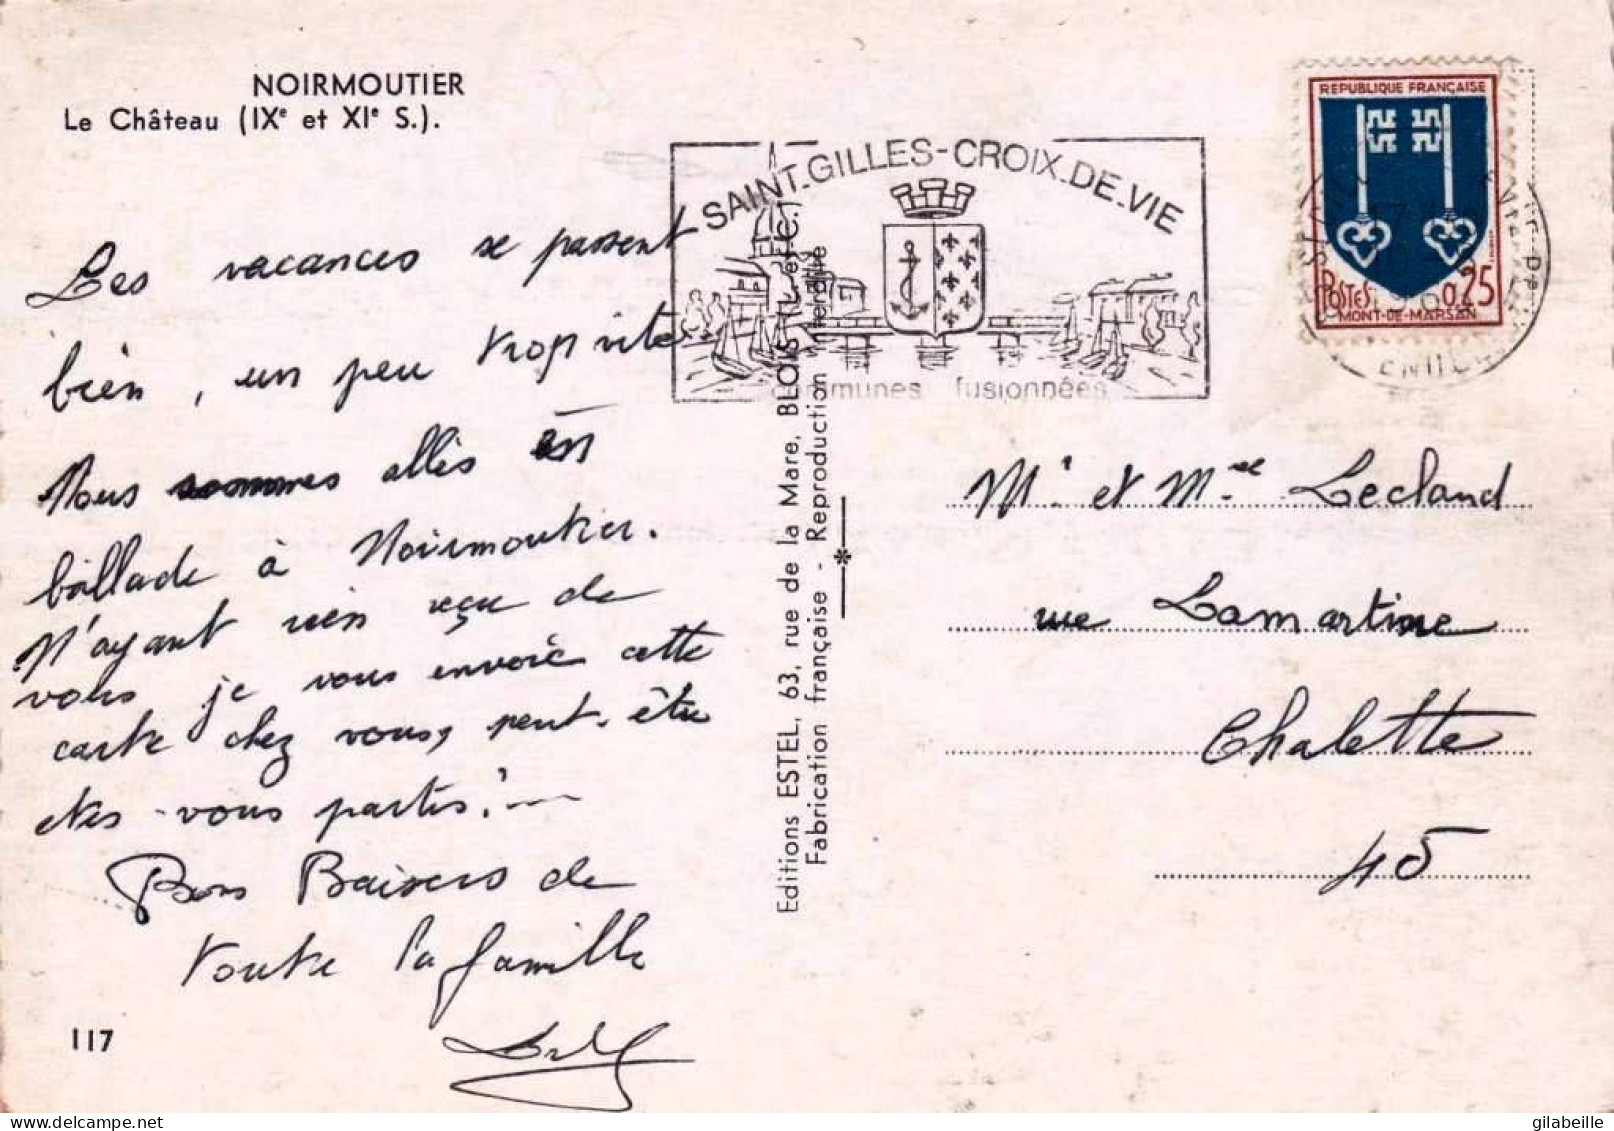 NOIRMOUTIER
Le Château (IXe et XIe S.).
Les vacances se passent
bien, un peu trop vite
Nous sommes allés en
ballade à Noirmoutier.
N'ayant rien reçu de
vous je vous envoie cette
carte chez vous, peut-être
etes-vous partis?
Bons Baisers de
toute la famille
117
Editions ESTEL, 63, rue de la Mare, BLOIS (L.-et-C.)
Fabrication française - Reproduction interdite
SAINT-GILLES-CROIX-DE-VIE
communes fusionnées
REPUBLIQUE FRANÇAISE
POSTES 0,25
MONT-DE-MARSAN
Mr et Mme Lecland
rue Lamartine
Chalette
45
gilabeille